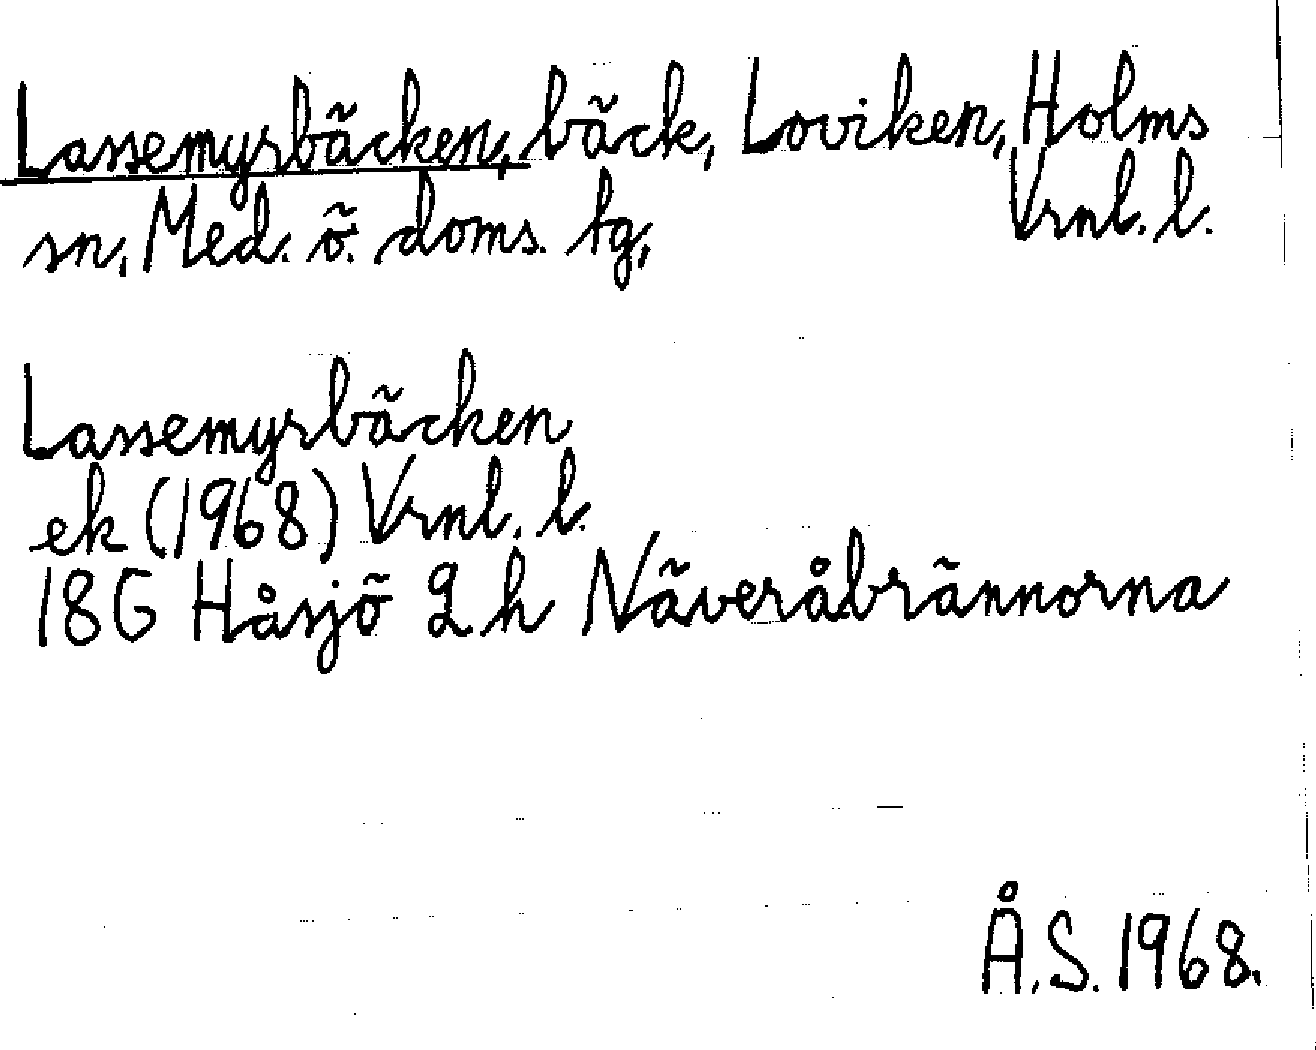 Lassemyrbäcken, bäck, Loviken, Holms
sn, Med. ö. doms. tg, Vrnl. l.
Lassemyrbäcken
ek (1968) Vrnl. l.
18G Håsjö 2 h Näveråbrännorna
Å.S. 1968.